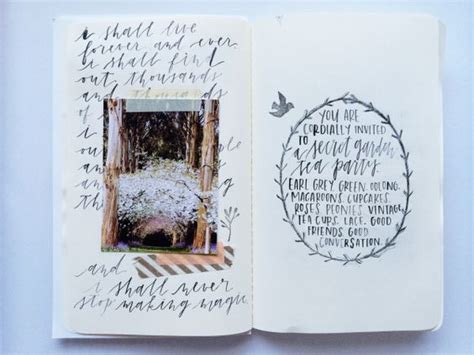 i shall live
forever and ever
i shall find
out thousands
and thousands
of
and
and
and
i shall never
stop making magic
YOU ARE
CORDIALLY INVITED
TO
a secret garden
tea party
EARL GREY GREEN. OOLONG.
MACAROONS. CUPCAKES.
ROSES PEONIES. VINTAGE
TEA CUPS. LACE. GOOD
FRIENDS. GOOD
CONVERSATION.